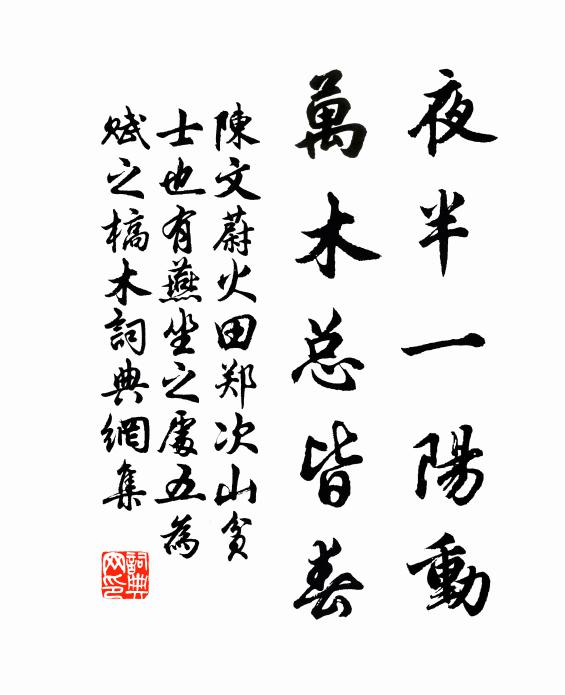 夜半一陽動
萬木总皆春
陳文蔚火田郑次山貧
士也有燕坐之處五為
赋之槁木詞典網集
詞典網印